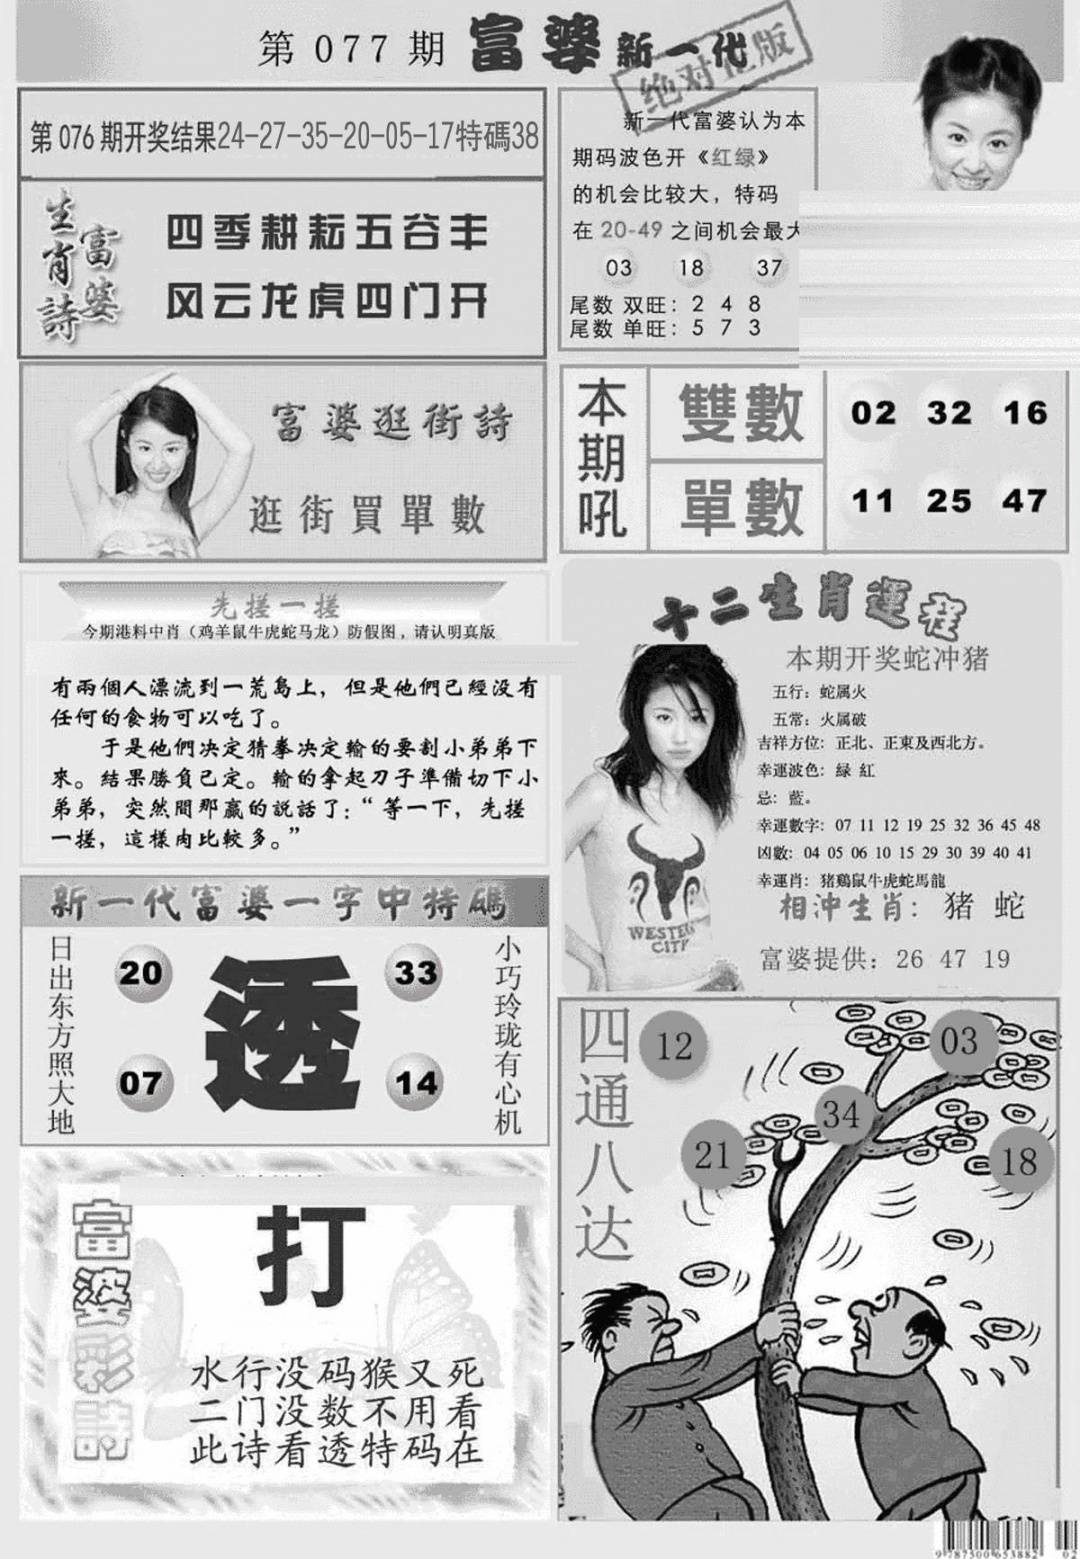 第077期 富婆新一代
绝对正版
第076期开奖结果24-27-35-20-05-17特碼38
生肖詩
富婆
四季耕耘五谷丰
风云龙虎四门开
新一代富婆认为本
期码波色开《红绿》
的机会比较大，特码
在 20-49 之间机会最大
03 18 37
尾数 双旺：2 4 8
尾数 单旺：5 7 3
富婆逛街詩
逛街買單數
本期吼
雙數 02 32 16
單數 11 25 47
先搓一搓
今期港料中肖（鸡羊鼠牛虎蛇马龙）防假图，请认明真版
有兩個人漂流到一荒島上，但是他們已經没有
任何的食物可以吃了。
于是他們决定猜拳决定輸的要割小弟弟下
來。結果勝負已定。輸的拿起刀子準備切下小
弟弟，突然間那贏的説話了：“等一下，先搓
一搓，這樣肉比較多。”
十二生肖運程
本期开奖蛇冲猪
五行：蛇属火
五常：火属破
吉祥方位：正北、正東及西北方。
幸運波色：緑 紅
忌：藍。
幸運數字：07 11 12 19 25 32 36 45 48
凶數：04 05 06 10 15 29 30 39 40 41
幸運肖：猪鷄鼠牛虎蛇馬龍
相沖生肖：猪 蛇
富婆提供：26 47 19
WESTERN
CITY
新一代富婆一字中特碼
日出东方照大地
20 33
透
07 14
小巧玲珑有心机
四通八达
12
03
34
21
18
富婆彩詩
打
水行没码猴又死
二门没数不用看
此诗看透特码在
9787500653882 02